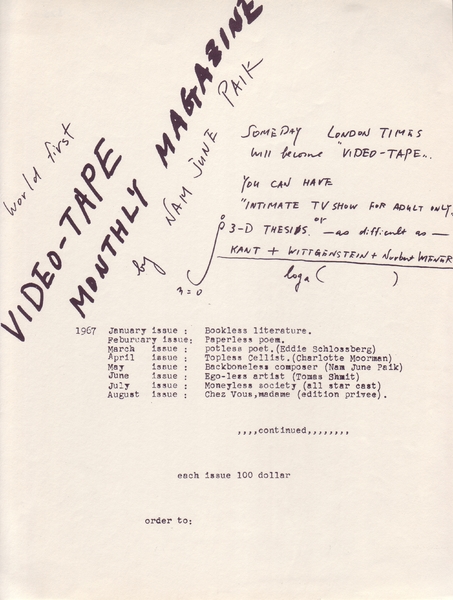 World first
VIDEO-TAPE
MONTHLY MAGAZINE
by NAM JUNE PAIK
SOMEDAY LONDON TIMES
will become "VIDEO-TAPE..
YOU CAN HAVE
"INTIMATE TV SHOW FOR ADULT ONLY.
or
3-D THESIS. —as difficult as—
KANT + WITTGENSTEIN + Norbert WIENER
loga ( )
3=0
1967 January issue : Bookless literature.
Feburuary issue: Paperless poem.
March issue : potless poet.(Eddie Schlossberg)
April issue : Topless Cellist.(Charlotte Moorman)
May issue : Backboneless composer (Nam June Paik)
June issue : Ego-less artist (Tomas Shmit)
July issue : Moneyless society (all star cast)
August issue : Chez Vous,madame (edition privee).
,,,,continued,,,,,,,,
each issue 100 dollar
order to: